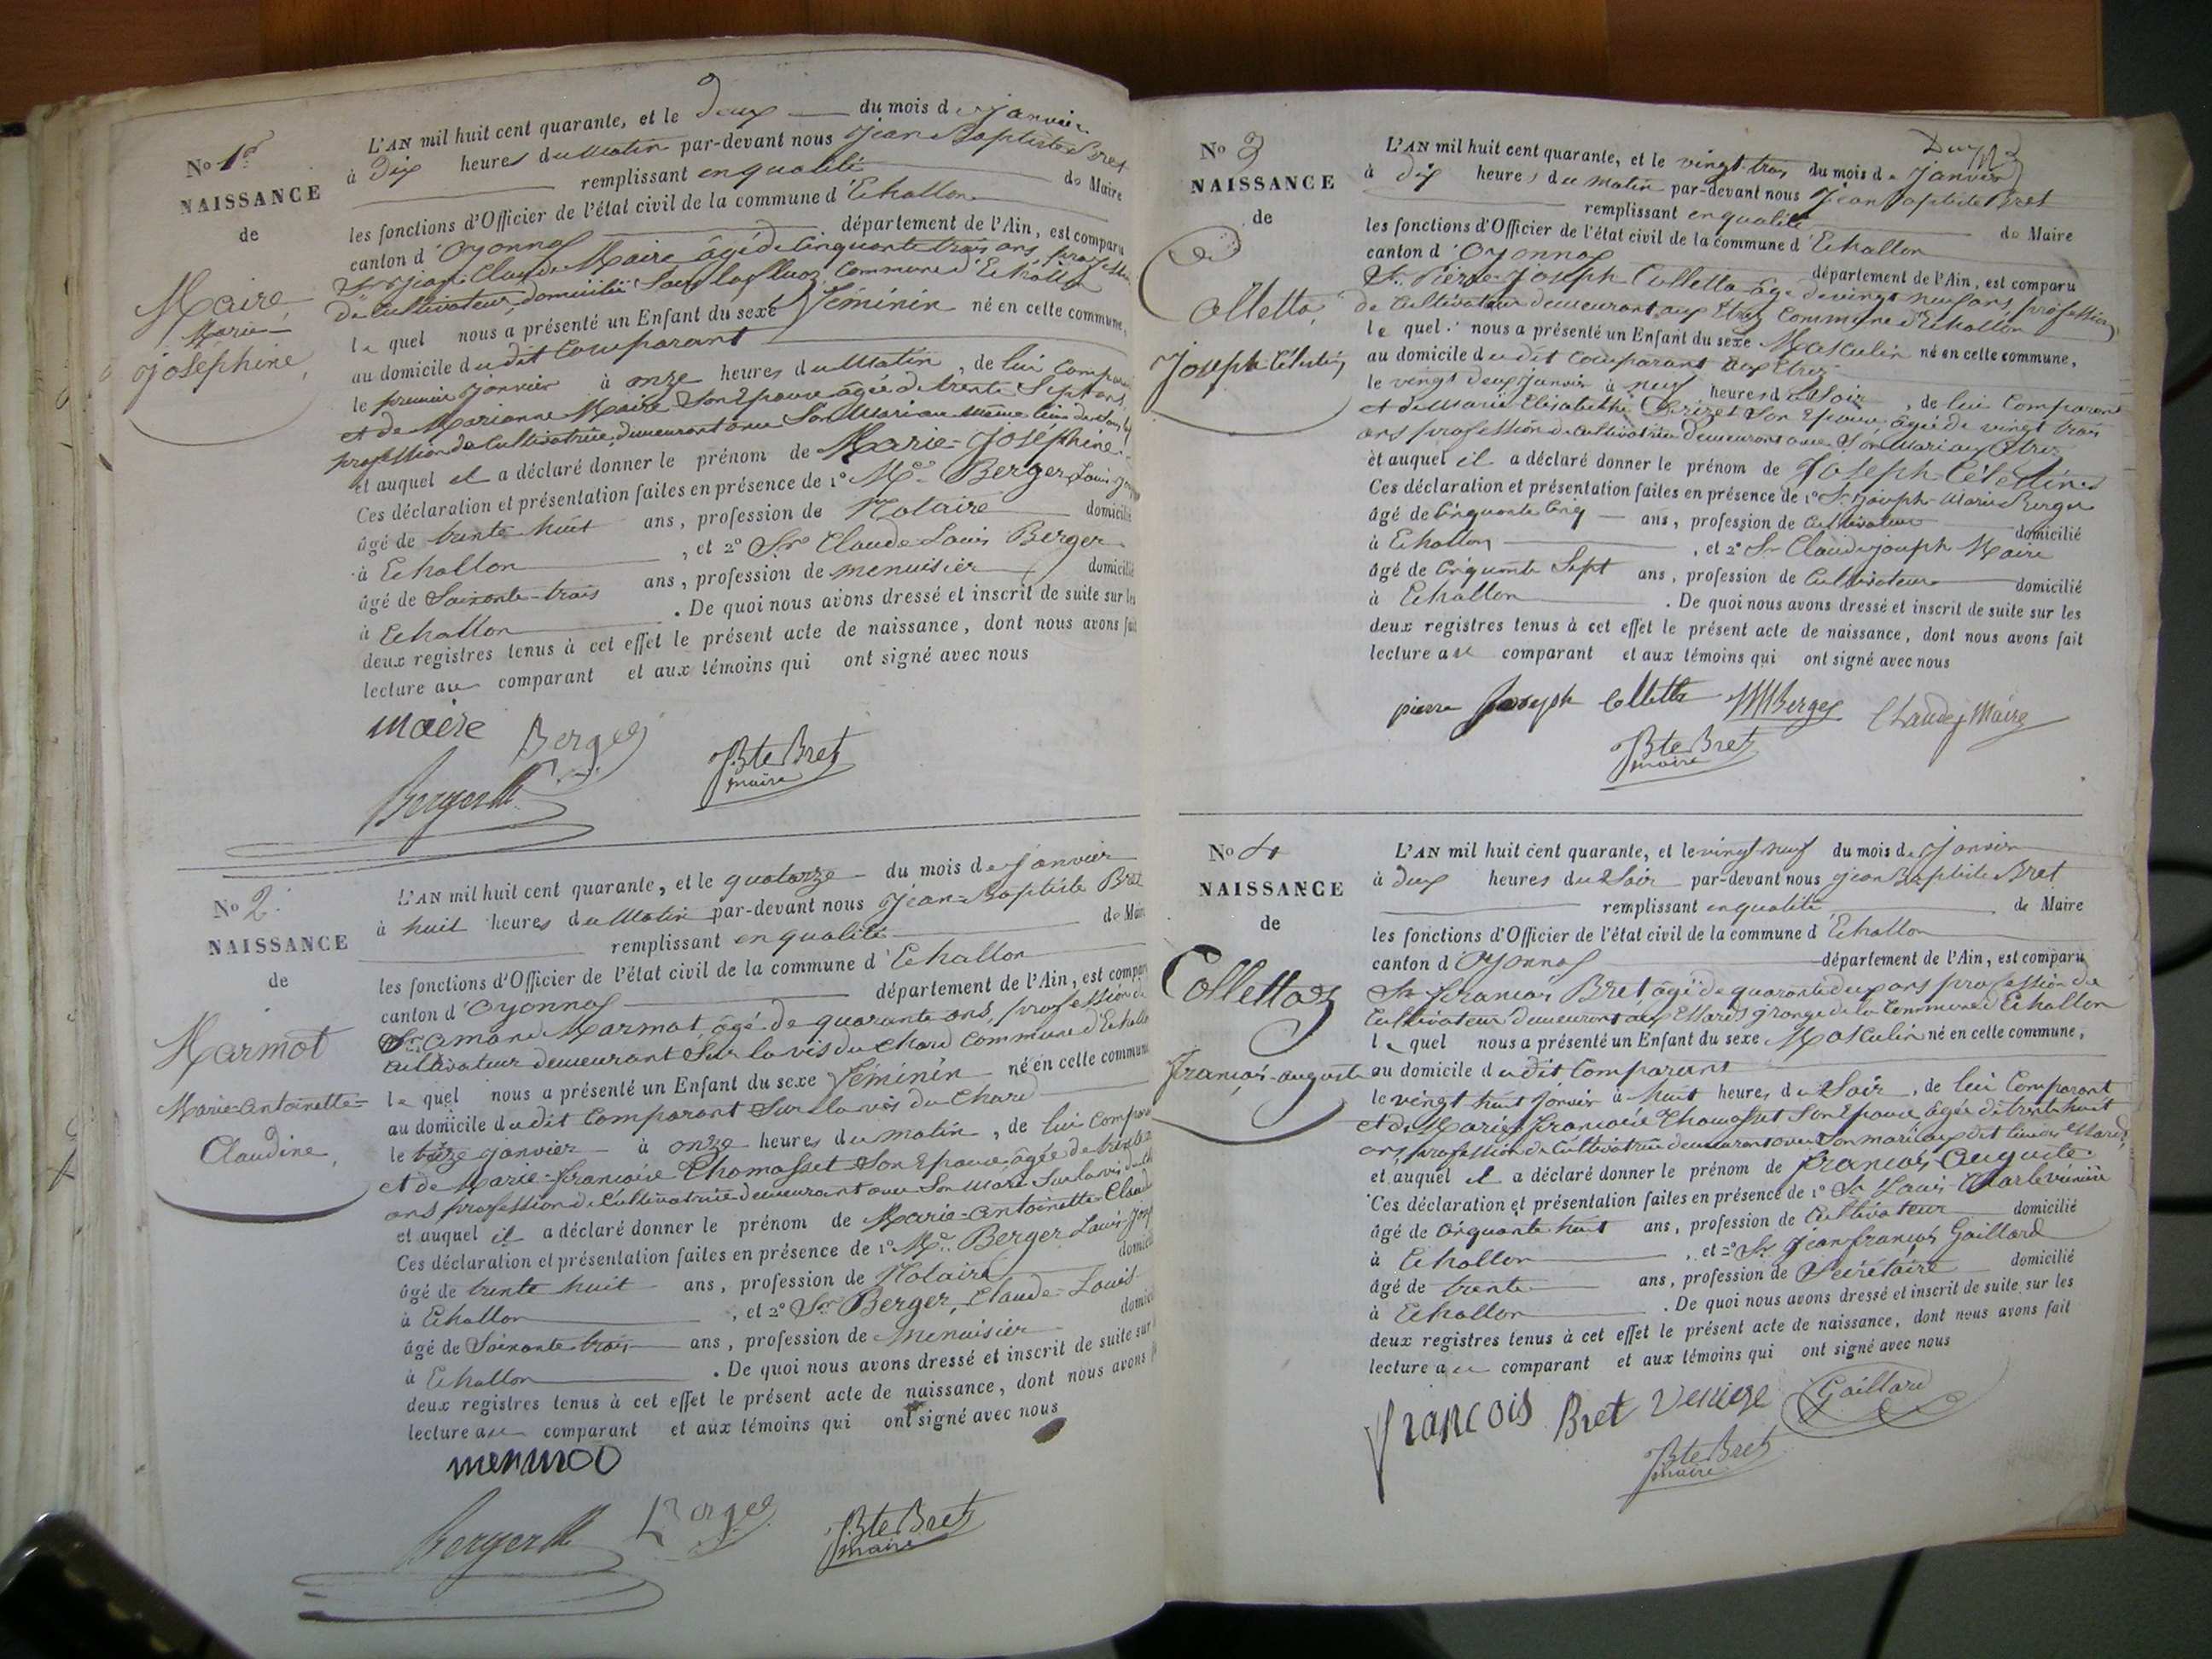 No 1er
NAISSANCE
de
Maire
Marie
joséphine
L'AN mil huit cent quarante, et le Deux du mois de janvier
à Dix heures du Matin par-devant nous Jean Baptiste Bret
remplissant en qualité de Maire
les fonctions d'Officier de l'état civil de la commune d'Echallon
canton d'Oyonnax département de l'Ain, est comparu
Sr jean Claude Maire âgé de Cinquante trois ans, profession
de Cultivateur, domicilié Commune d'Echallon
le quel nous a présenté un Enfant du sexe féminin né en cette commune,
au domicile du dit Comparant
le premier janvier à onze heures du Matin, de lui Comparant
et de Marianne Maire Son Epouse âgée de trente Sept ans,
profession de Cultivatrice, demeurant avec Son Mari au même lieu
et auquel il a déclaré donner le prénom de Marie-Joséphine.
Ces déclaration et présentation faites en présence de 1º Me Berger Louis
âgé de trente huit ans, profession de Notaire domicilié
à Echallon, et 2º Sr Claude Louis Berger
âgé de Soixante-trois ans, profession de menuisier domicilié
à Echallon. De quoi nous avons dressé et inscrit de suite sur les
deux registres tenus à cet effet le présent acte de naissance, dont nous avons fait
lecture au comparant et aux témoins qui ont signé avec nous
maire Berger
Bte Bret
maire
Berger
No 2
NAISSANCE
de
Marmot
Marie-Antoinette=
Claudine
L'AN mil huit cent quarante, et le quatorze du mois de janvier
à huit heures du Matin par-devant nous Jean-Baptiste Bret
remplissant en qualité de Maire
les fonctions d'Officier de l'état civil de la commune d'Echallon
canton d'Oyonnax département de l'Ain, est comparu
Sr amand Marmot, âgé de quarante ans, profession de
Cultivateur demeurant Sur la vis du Chard Commune d'Echallon
le quel nous a présenté un Enfant du sexe féminin né en cette commune
au domicile du dit Comparant Sur la vis du Chard
le treize janvier à onze heures du matin, de lui Comparant
et de Marie-françoise Thomasset Son Epouse, âgée de
ans profession de Cultivatrice demeurant avec Son Mari Sur la vis du
et auquel il a déclaré donner le prénom de Marie-Antoinette-Claudine
Ces déclaration et présentation faites en présence de 1º Me Berger Louis
âgé de trente huit ans, profession de Notaire domicilié
à Echallon, et 2º Sr Berger, Claude-Louis
âgé de Soixante-trois ans, profession de Menuisier domicilié
à Echallon. De quoi nous avons dressé et inscrit de suite sur
deux registres tenus à cet effet le présent acte de naissance, dont nous avons
lecture au comparant et aux témoins qui ont signé avec nous
Berger Berger
Bte Bret
maire
No 3
NAISSANCE
de
Colletta
Joseph-Célestin
L'AN mil huit cent quarante, et le vingt-trois du mois de Janvier
à dix heures du matin par-devant nous Jean Baptiste Bret
remplissant en qualité de Maire
les fonctions d'Officier de l'état civil de la commune d'Echallon
canton d'Oyonnax département de l'Ain, est comparu
Sr Pierre-Joseph Colletta âgé de vingt neuf ans, profession
de Cultivateur demeurant aux Etrez Commune d'Echallon
le quel nous a présenté un Enfant du sexe Masculin né en cette commune,
au domicile du dit Comparant aux Etrez
le vingt deux janvier à neuf heures du Soir, de lui Comparant
et de Marie Elisabeth Son Epouse âgée de vingt trois
ans profession de Cultivatrice demeurant avec Son Mari aux Etrez
et auquel il a déclaré donner le prénom de Joseph-Célestin
Ces déclaration et présentation faites en présence de 1º Sr joseph-Marie Berger
âgé de Cinquante Cinq ans, profession de Cultivateur domicilié
à Echallon, et 2º Sr Claude joseph Maire
âgé de Cinquante Sept ans, profession de Cultivateur domicilié
à Echallon. De quoi nous avons dressé et inscrit de suite sur les
deux registres tenus à cet effet le présent acte de naissance, dont nous avons fait
lecture au comparant et aux témoins qui ont signé avec nous
pierre Joseph Colletta Berger Claude j Maire
Bte Bret
maire
No 4
NAISSANCE
de
Collettaz
françois-auguste
L'AN mil huit cent quarante, et le vingt neuf du mois de Janvier
à deux heures du Soir par-devant nous jean Baptiste Bret
remplissant en qualité de Maire
les fonctions d'Officier de l'état civil de la commune d'Echallon
canton d'Oyonnax département de l'Ain, est comparu
Sr françois Bret, âgé de quarante deux ans profession de
Cultivateur demeurant aux Essards grange de la Commune d'Echallon
le quel nous a présenté un Enfant du sexe Masculin né en cette commune,
au domicile du dit Comparant
le vingt huit janvier à huit heures du Soir, de lui Comparant
et de Marie françoise Thomasset Son Epouse, âgée de trente huit
ans profession de Cultivatrice demeurant avec Son mari aux dit lieu des Essards,
et auquel il a déclaré donner le prénom de françois-Auguste.
Ces déclaration et présentation faites en présence de 1º Sr Louis-Marie
âgé de Cinquante huit ans, profession de Cultivateur domicilié
à Echallon, et 2º Sr Jean françois Gaillard
âgé de trente ans, profession de Secrétaire domicilié
à Echallon. De quoi nous avons dressé et inscrit de suite sur les
deux registres tenus à cet effet le présent acte de naissance, dont nous avons fait
lecture au comparant et aux témoins qui ont signé avec nous
françois Bret Gaillard
Bte Bret
maire